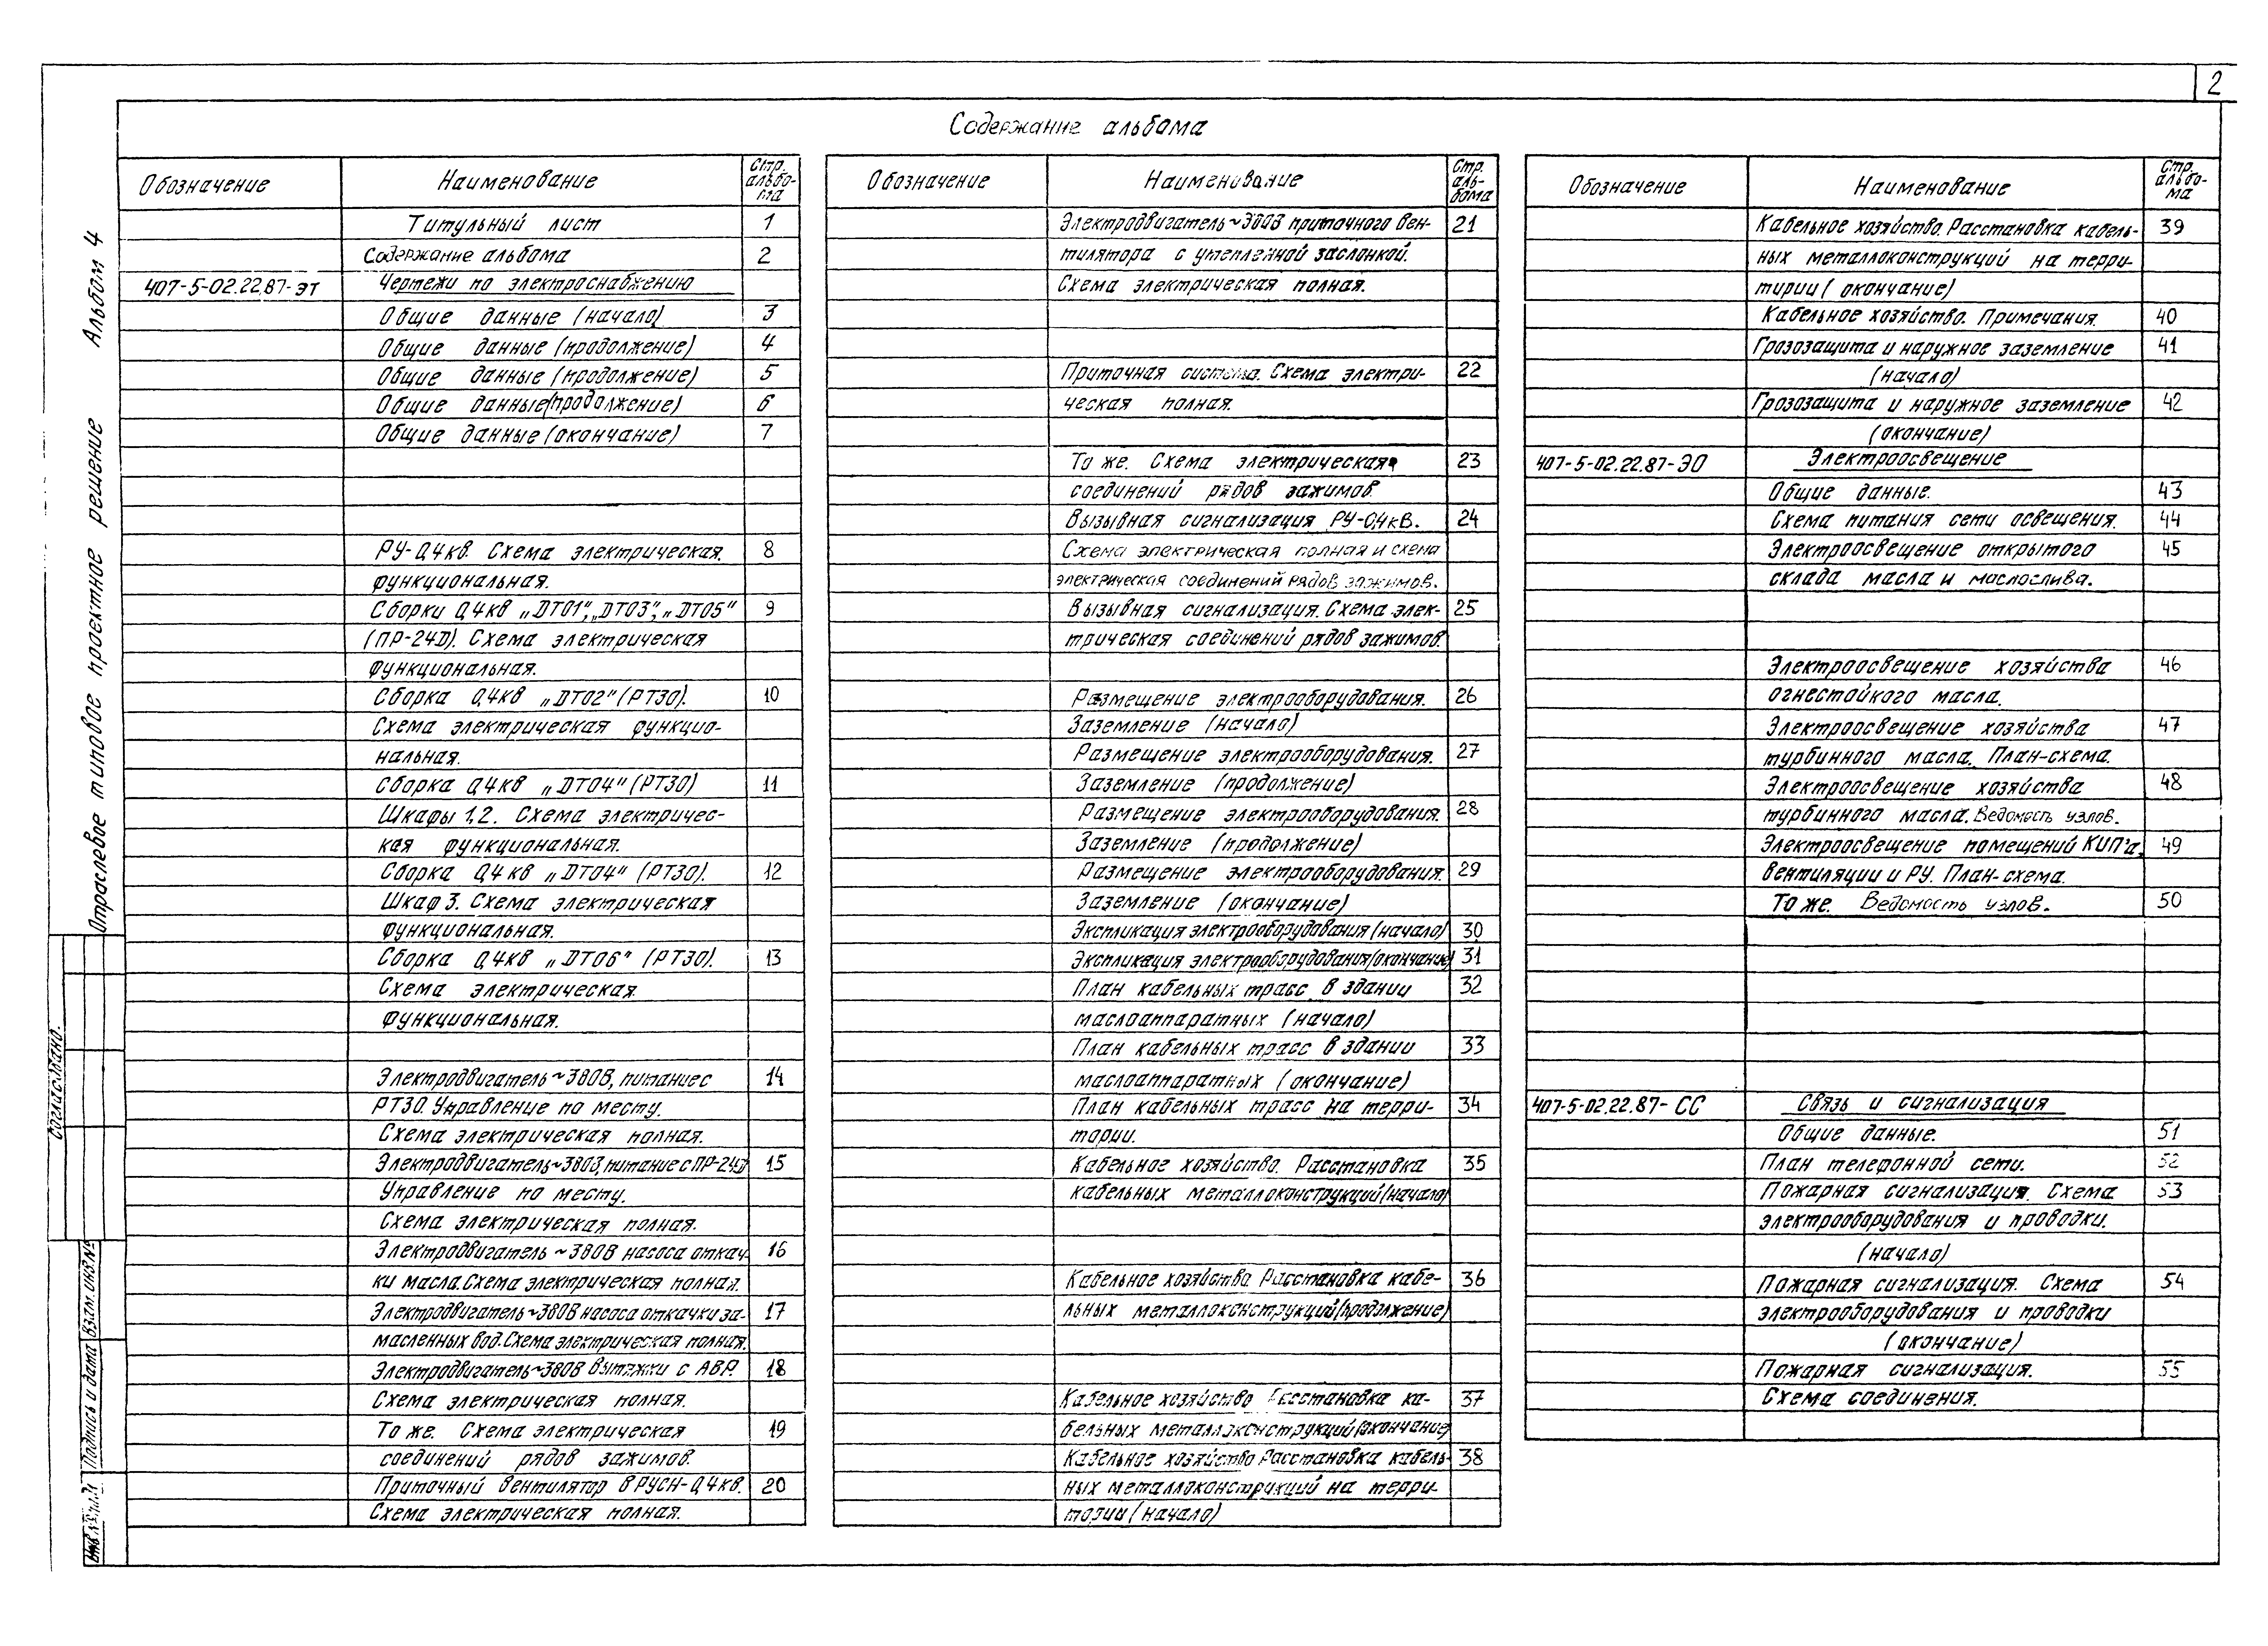 2
Содержание альбома
Обозначение Наименование Стр. альбо- ма
Титульный лист 1
Содержание альбома 2
407-5-02.22.87-ЭТ Чертежи по электроснабжению
Общие данные (начало) 3
Общие данные (продолжение) 4
Общие данные (продолжение) 5
Общие данные (продолжение) 6
Общие данные (окончание) 7
РУ-0,4кв. Схема электрическая. 8
функциональная.
Сборки 0,4кв „DT01", „DT03", „DT05" 9
(ПР-24D). Схема электрическая
функциональная.
Сборка 0,4кв „DT02" (РТ30). 10
Схема электрическая функцио-
нальная.
Сборка 0,4кв „DT04" (РТ30) 11
Шкафы 1,2. Схема электричес-
кая функциональная.
Сборка 0,4кв „DT04" (РТ30). 12
Шкаф 3. Схема электрическая
функциональная.
Сборка 0,4кв „DT06" (РТ30). 13
Схема электрическая
функциональная.
Электродвигатель ~380В, питание с 14
РТ30. Управление по месту.
Схема электрическая полная.
Электродвигатель ~380В, питание с ПР-24D 15
Управление по месту.
Схема электрическая полная.
Электродвигатель ~380В насоса откач- 16
ки масла. Схема электрическая полная.
Электродвигатель ~380В насоса откачки за- 17
масленных вод. Схема электрическая полная.
Электродвигатель ~380В вытяжки с АВР. 18
Схема электрическая полная.
То же. Схема электрическая 19
соединений рядов зажимов.
Приточный вентилятор в РУСН-0,4кв. 20
Схема электрическая полная.
Обозначение Наименование Стр. аль- бома
Электродвигатель ~380В приточного вен- 21
тилятора с утепленной заслонкой.
Схема электрическая полная.
Приточная система. Схема электри- 22
ческая полная.
То же. Схема электрическая 23
соединений рядов зажимов.
Вызывная сигнализация РУ-0,4кВ. 24
Схема электрическая полная и схема
электрическая соединений рядов зажимов.
Вызывная сигнализация. Схема элек- 25
трическая соединений рядов зажимов.
Размещение электрооборудования. 26
Заземление (начало)
Размещение электрооборудования. 27
Заземление (продолжение)
Размещение электрооборудования. 28
Заземление (продолжение)
Размещение электрооборудования. 29
Заземление (окончание)
Экспликация электрооборудования (начало) 30
Экспликация электрооборудования (окончание) 31
План кабельных трасс в здании 32
маслоаппаратных (начало)
План кабельных трасс в здании 33
маслоаппаратных (окончание)
План кабельных трасс на терри- 34
тории.
Кабельное хозяйство. Расстановка 35
кабельных металлоконструкций (начало)
Кабельное хозяйство Расстановка кабе- 36
льных металлоконструкций (продолжение)
Кабельное хозяйство Расстановка ка- 37
бельных металлоконструкций (окончание)
Кабельное хозяйство Расстановка кабель- 38
ных металлоконструкций на терри-
тории (начало)
Обозначение Наименование Стр. альбо- ма
Кабельное хозяйство. Расстановка кабель- 39
ных металлоконструкций на терри-
тирии (окончание)
Кабельное хозяйство. Примечания. 40
Грозозащита и наружное заземление 41
(начало)
Грозозащита и наружное заземление 42
(окончание)
407-5-02.22.87-ЭО Электроосвещение
Общие данные. 43
Схема питания сети освещения. 44
Электроосвещение открытого 45
склада масла и маслослива.
Электроосвещение хозяйства 46
огнестойкого масла.
Электроосвещение хозяйства 47
турбинного масла. План-схема.
Электроосвещение хозяйства 48
турбинного масла. Ведомость узлов.
Электроосвещение помещений КИП'а, 49
вентиляции и РУ. План-схема.
То же. Ведомость узлов. 50
407-5-02.22.87-СС Связь и сигнализация
Общие данные. 51
План телефонной сети. 52
Пожарная сигнализация. Схема 53
электрооборудования и проводки.
(начало)
Пожарная сигнализация. Схема 54
электрооборудования и проводки
(окончание)
Пожарная сигнализация. 55
Схема соединения.
Отраслевое типовое проектное решение Альбом 4
Согласовано.
Взам. инв.№
Подпись и дата